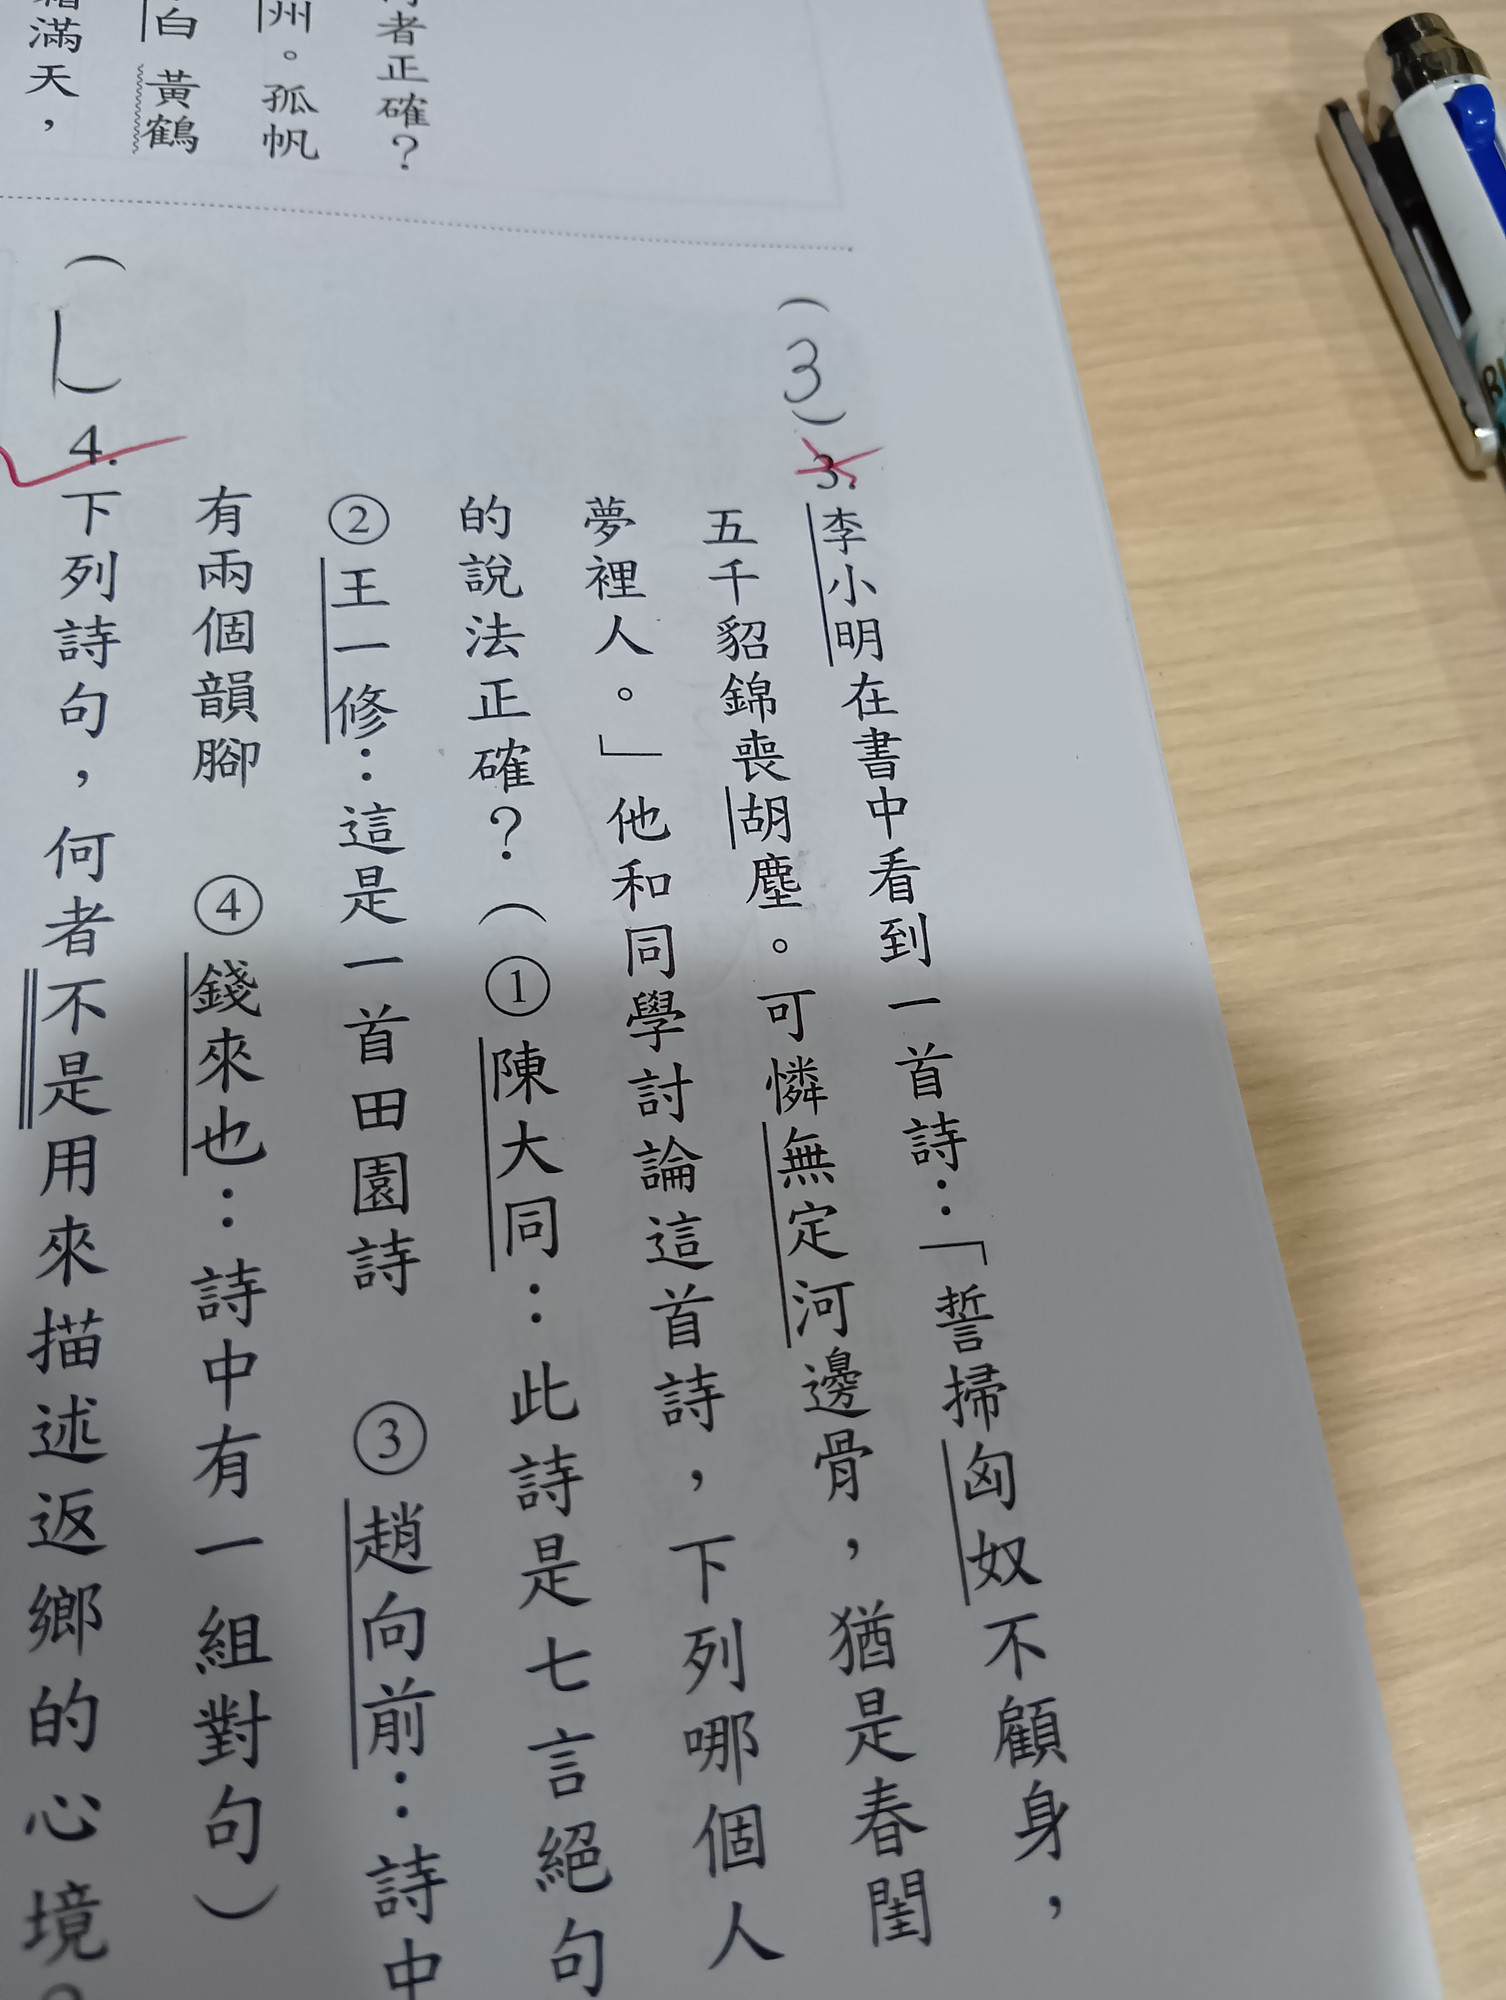 者正確？
州。孤帆
白 黃鶴
滿天，
（3）3.李小明在書中看到一首詩：「誓掃匈奴不顧身，
五千貂錦喪胡塵。可憐無定河邊骨，猶是春閨
夢裡人。」他和同學討論這首詩，下列哪個人
的說法正確？（①陳大同：此詩是七言絕句
②王一修：這是一首田園詩 ③趙向前：詩中
有兩個韻腳 ④錢來也：詩中有一組對句）
（1）4.下列詩句，何者不是用來描述返鄉的心境？